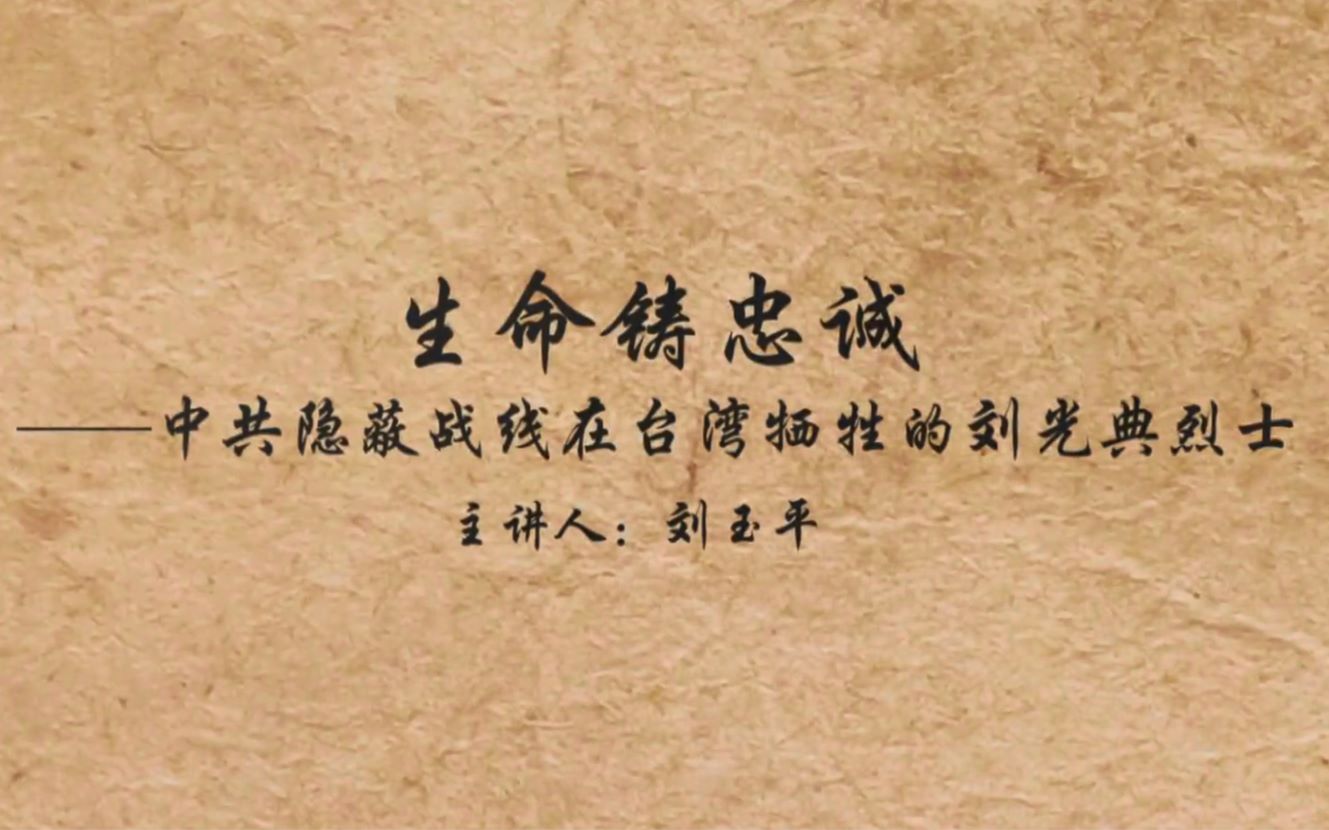 生命铸忠诚
——中共隐蔽战线在台湾牺牲的刘光典烈士
主讲人：刘玉平